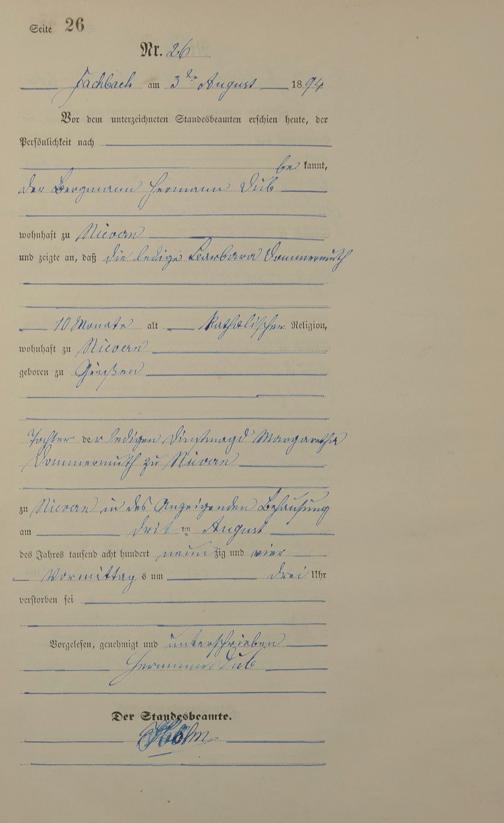 Seite 26
Nr. 26
Fachbach am 3ten August 1894
Vor dem unterzeichneten Standesbeamten erschien heute, der
Persönlichkeit nach
be kannt,
der Bergmann Hermann Dub
wohnhaft zu Nievern
und zeigte an, daß die ledige Barbara Dommermuth
10 Monate alt katholischer Religion,
wohnhaft zu Nievern
geboren zu Gießen
Tochter der ledigen Dienstmagd Margaretha
Dommermuth zu Nievern
zu Nievern in des Anzeigenden Behausung
am dritten August
des Jahres tausend acht hundert neunzig und vier
Vormittags um drei Uhr
verstorben sei
Vorgelesen, genehmigt und unterschrieben
Hermann Dub
Der Standesbeamte.